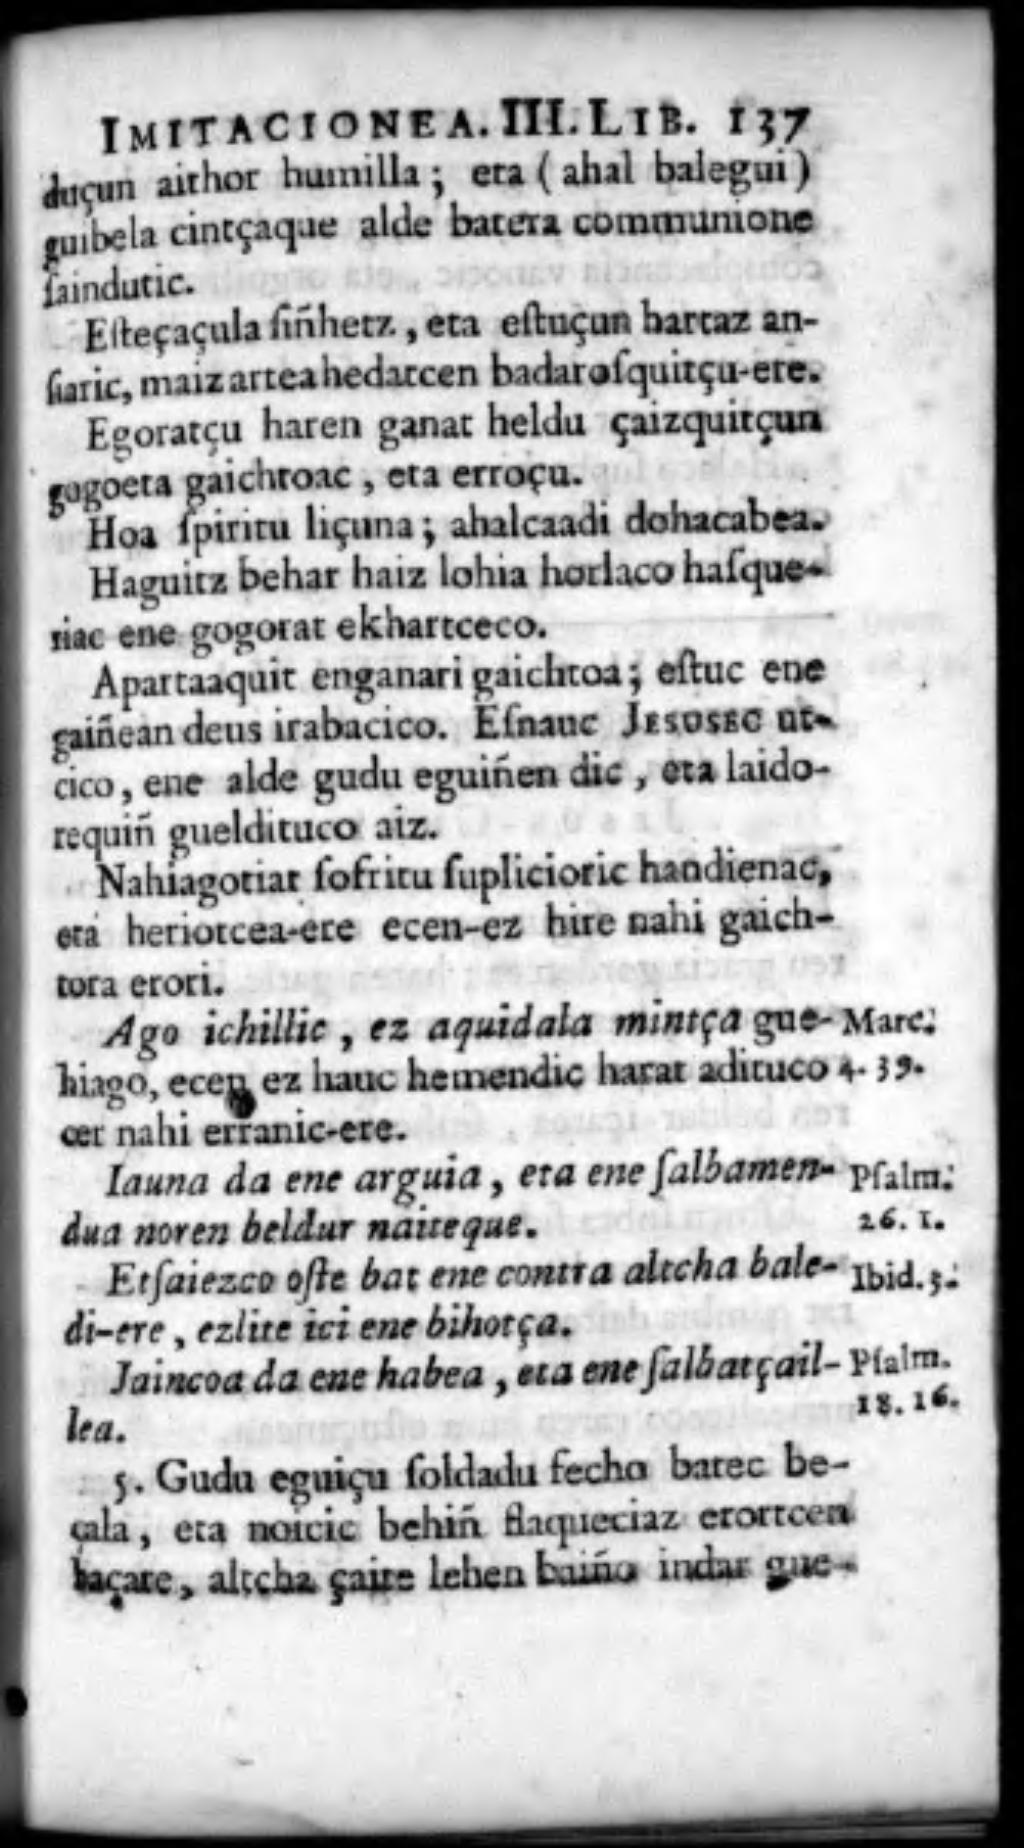 IMITACIONEA. III. LIB. 137
duçun aithor humilla; eta ( ahal balegui )
guibela cintçaque alde batera communione
ſaindutic.
Eſteçaçula ſiñhetz, eta eſtuçun hartaz an-
ſiaric, maiz artea hedatcen badaroſquitçu-ere.
Egoratçu haren ganat heldu çaizquitçun
gogoeta gaichtoac, eta erroçu.
Hoa ſpiritu liçuna; ahalcaadi dohacabea.
Haguitz behar haiz lohia horlaco haſque-
riac ene gogorat ekhartceco.
Apartaaquit enganari gaichtoa; eſtuc ene
gaiñean deus irabacico. Eſnauc JESUSEC ut-
cico, ene alde gudu eguiñen dic, eta laido-
requiñ gueldituco aiz.
Nahiagotiat ſofritu ſuplicioric handienac,
eta heriotcea-ere ecen-ez hire nahi gaich-
tora erori.
Ago ichillic, ez aquidala mintça gue- Marc.
hiago, ecen ez hauc hemendic harat adituco 4. 39.
cer nahi erranic-ere.
Iauna da ene arguia, eta ene ſalbamen- Pſalm.
dua noren beldur naiteque. 26. 1.
Etſaiezco oſte bat ene contra altcha bale- Ibid. 3.
di-ere, ezlite ici ene bihotça.
Jaincoa da ene habea, eta ene ſalbatçail- Pſalm.
lea. 18. 16.
5. Gudu eguiçu ſoldadu fecho batec be-
çala, eta noicic behiñ flaqueciaz erortcen
baçare, altcha çaite lehen baiño indar gue-